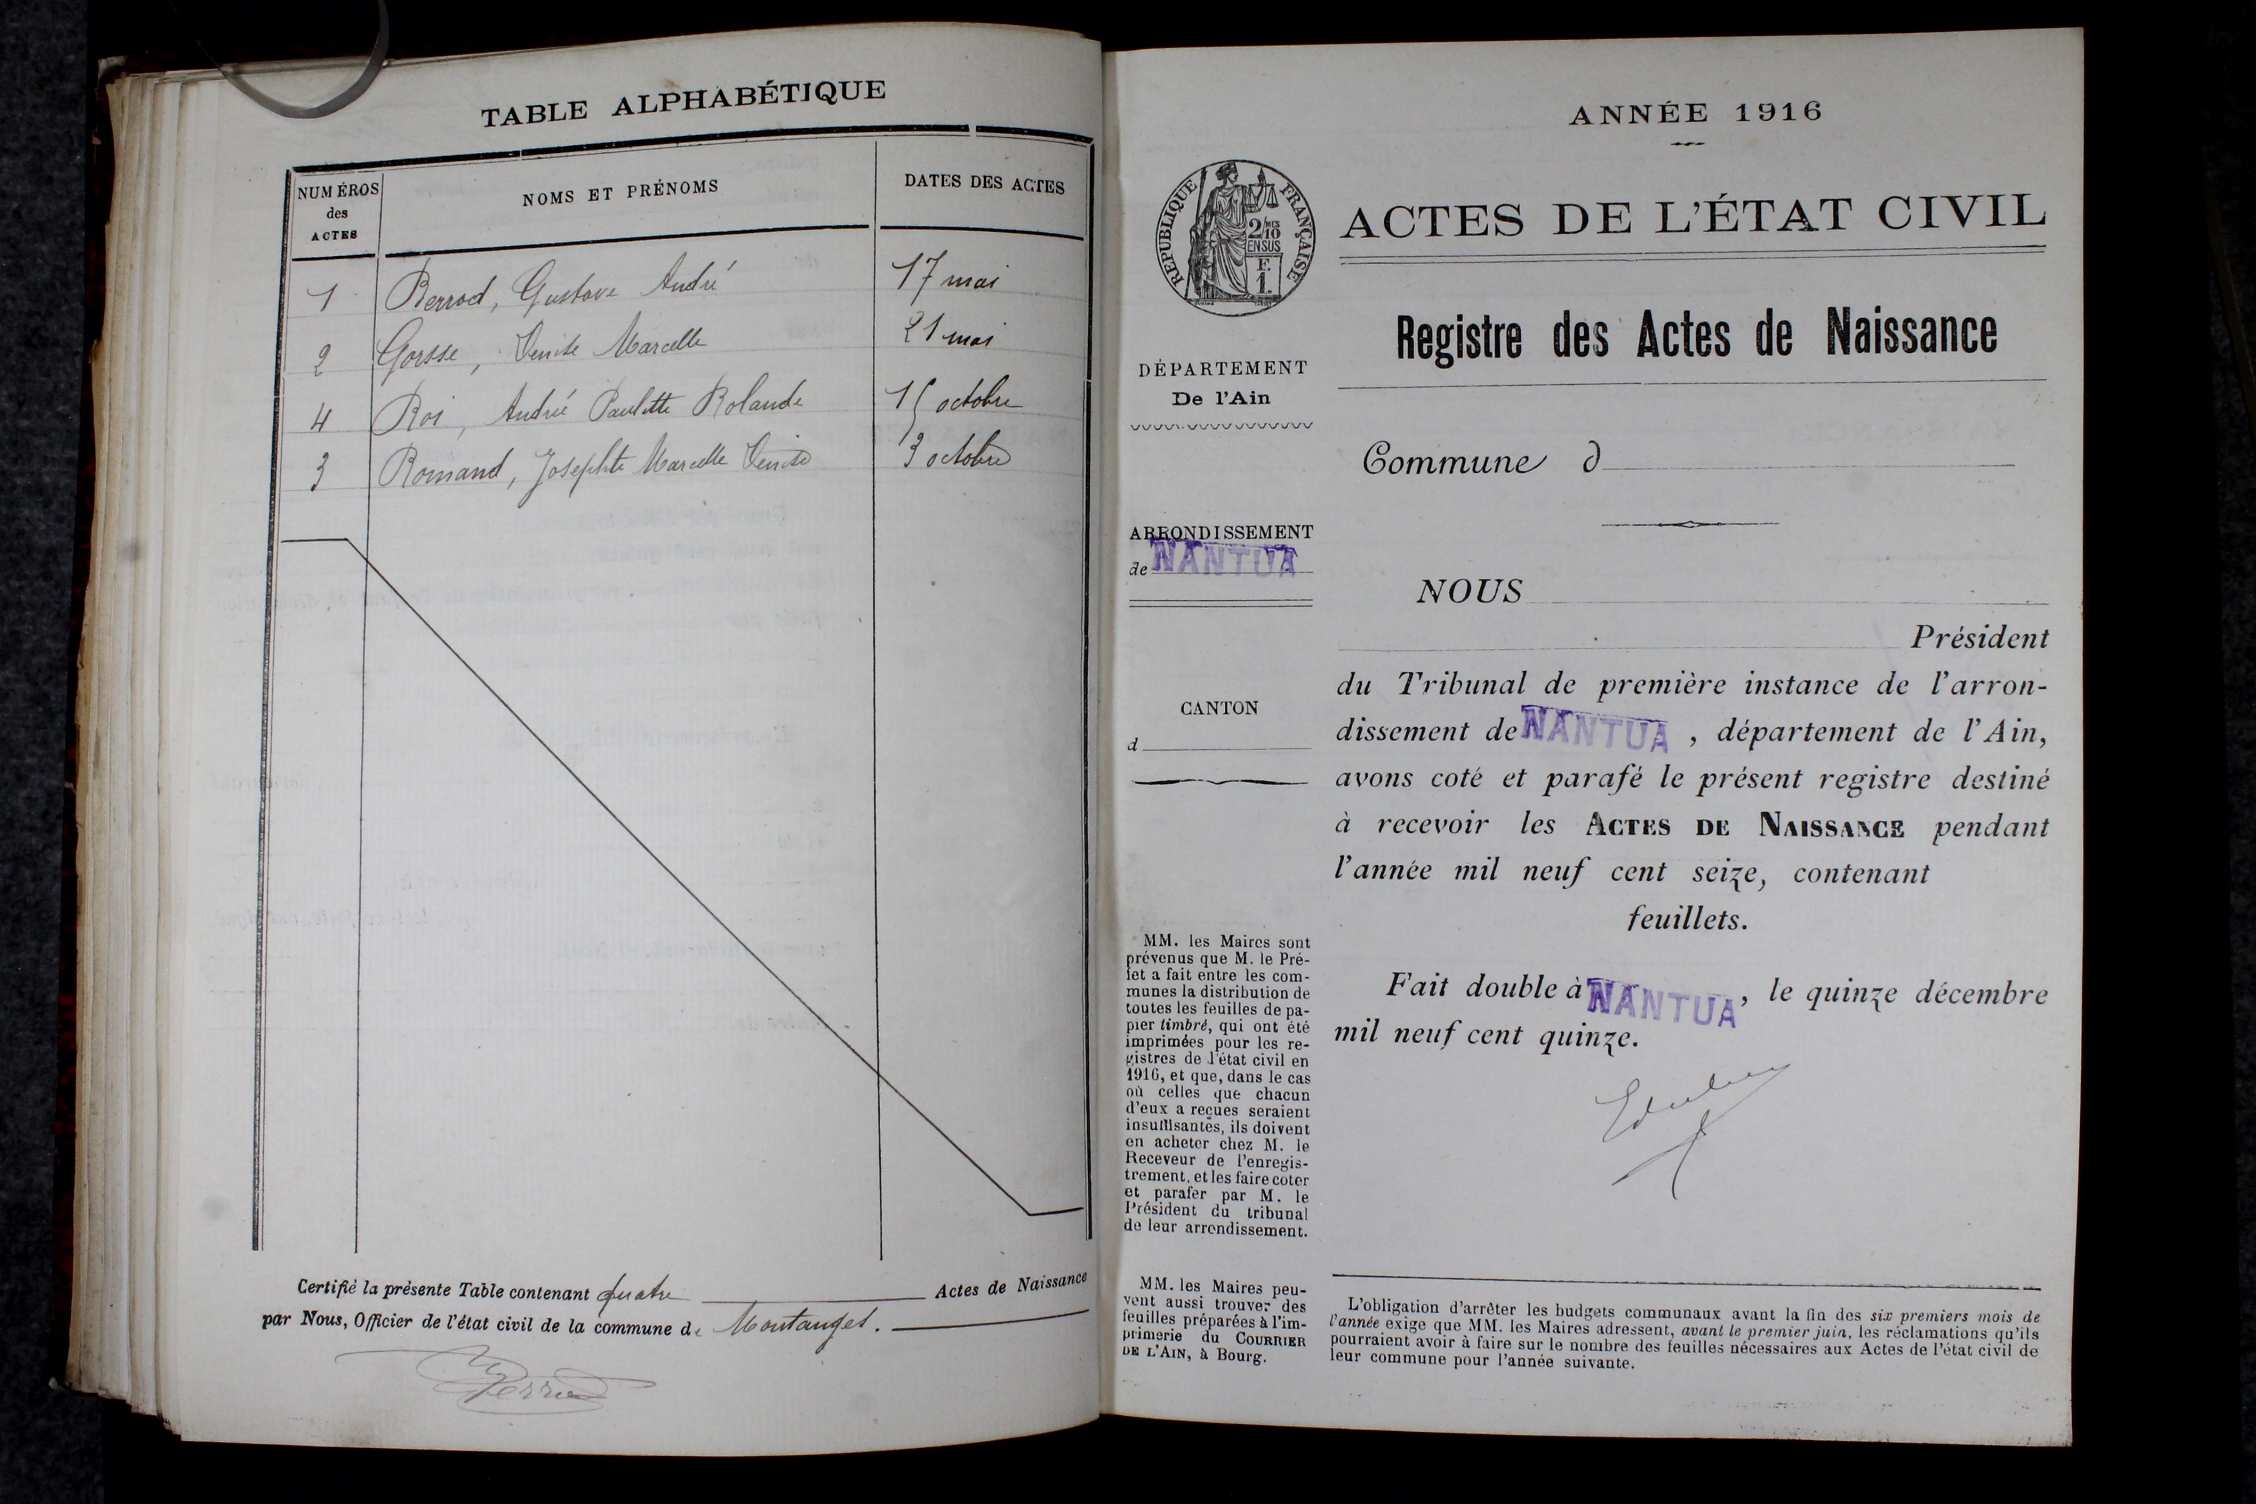 TABLE ALPHABÉTIQUE
NUMÉROS des ACTES
NOMS ET PRÉNOMS
DATES DES ACTES
1 Berrod, Gustave André 17 mai
2 Gorsse, Denise Marcelle 21 mai
4 Roi, André Paulette Rolande 15 octobre
3 Romand, Josephte Marcelle Denise 3 octobre
Certifié la présente Table contenant quatre Actes de Naissance
par Nous, Officier de l'état civil de la commune de Montanges.
Perrin
ANNÉE 1916
RÉPUBLIQUE FRANÇAISE
2/10 MES
EN SUS
F.
1.
ACTES DE L'ÉTAT CIVIL
Registre des Actes de Naissance
DÉPARTEMENT
De l'Ain
Commune d
ARRONDISSEMENT
de NANTUA
CANTON
d
NOUS
Président
du Tribunal de première instance de l'arron-
dissement de NANTUA, département de l'Ain,
avons coté et parafé le présent registre destiné
à recevoir les ACTES DE NAISSANCE pendant
l'année mil neuf cent seize, contenant
feuillets.
Fait double à NANTUA, le quinze décembre
mil neuf cent quinze.
MM. les Maires sont
prévenus que M. le Pré-
fet a fait entre les com-
munes la distribution de
toutes les feuilles de pa-
pier timbré, qui ont été
imprimées pour les re-
gistres de l'état civil en
1916, et que, dans le cas
où celles que chacun
d'eux a reçues seraient
insuffisantes, ils doivent
en acheter chez M. le
Receveur de l'enregis-
trement, et les faire coter
et parafer par M. le
Président du tribunal
de leur arrondissement.
MM. les Maires peu-
vent aussi trouver des
feuilles préparées à l'im-
primerie du COURRIER
DE L'AIN, à Bourg.
L'obligation d'arrêter les budgets communaux avant la fin des six premiers mois de
l'année exige que MM. les Maires adressent, avant le premier juin, les réclamations qu'ils
pourraient avoir à faire sur le nombre des feuilles nécessaires aux Actes de l'état civil de
leur commune pour l'année suivante.